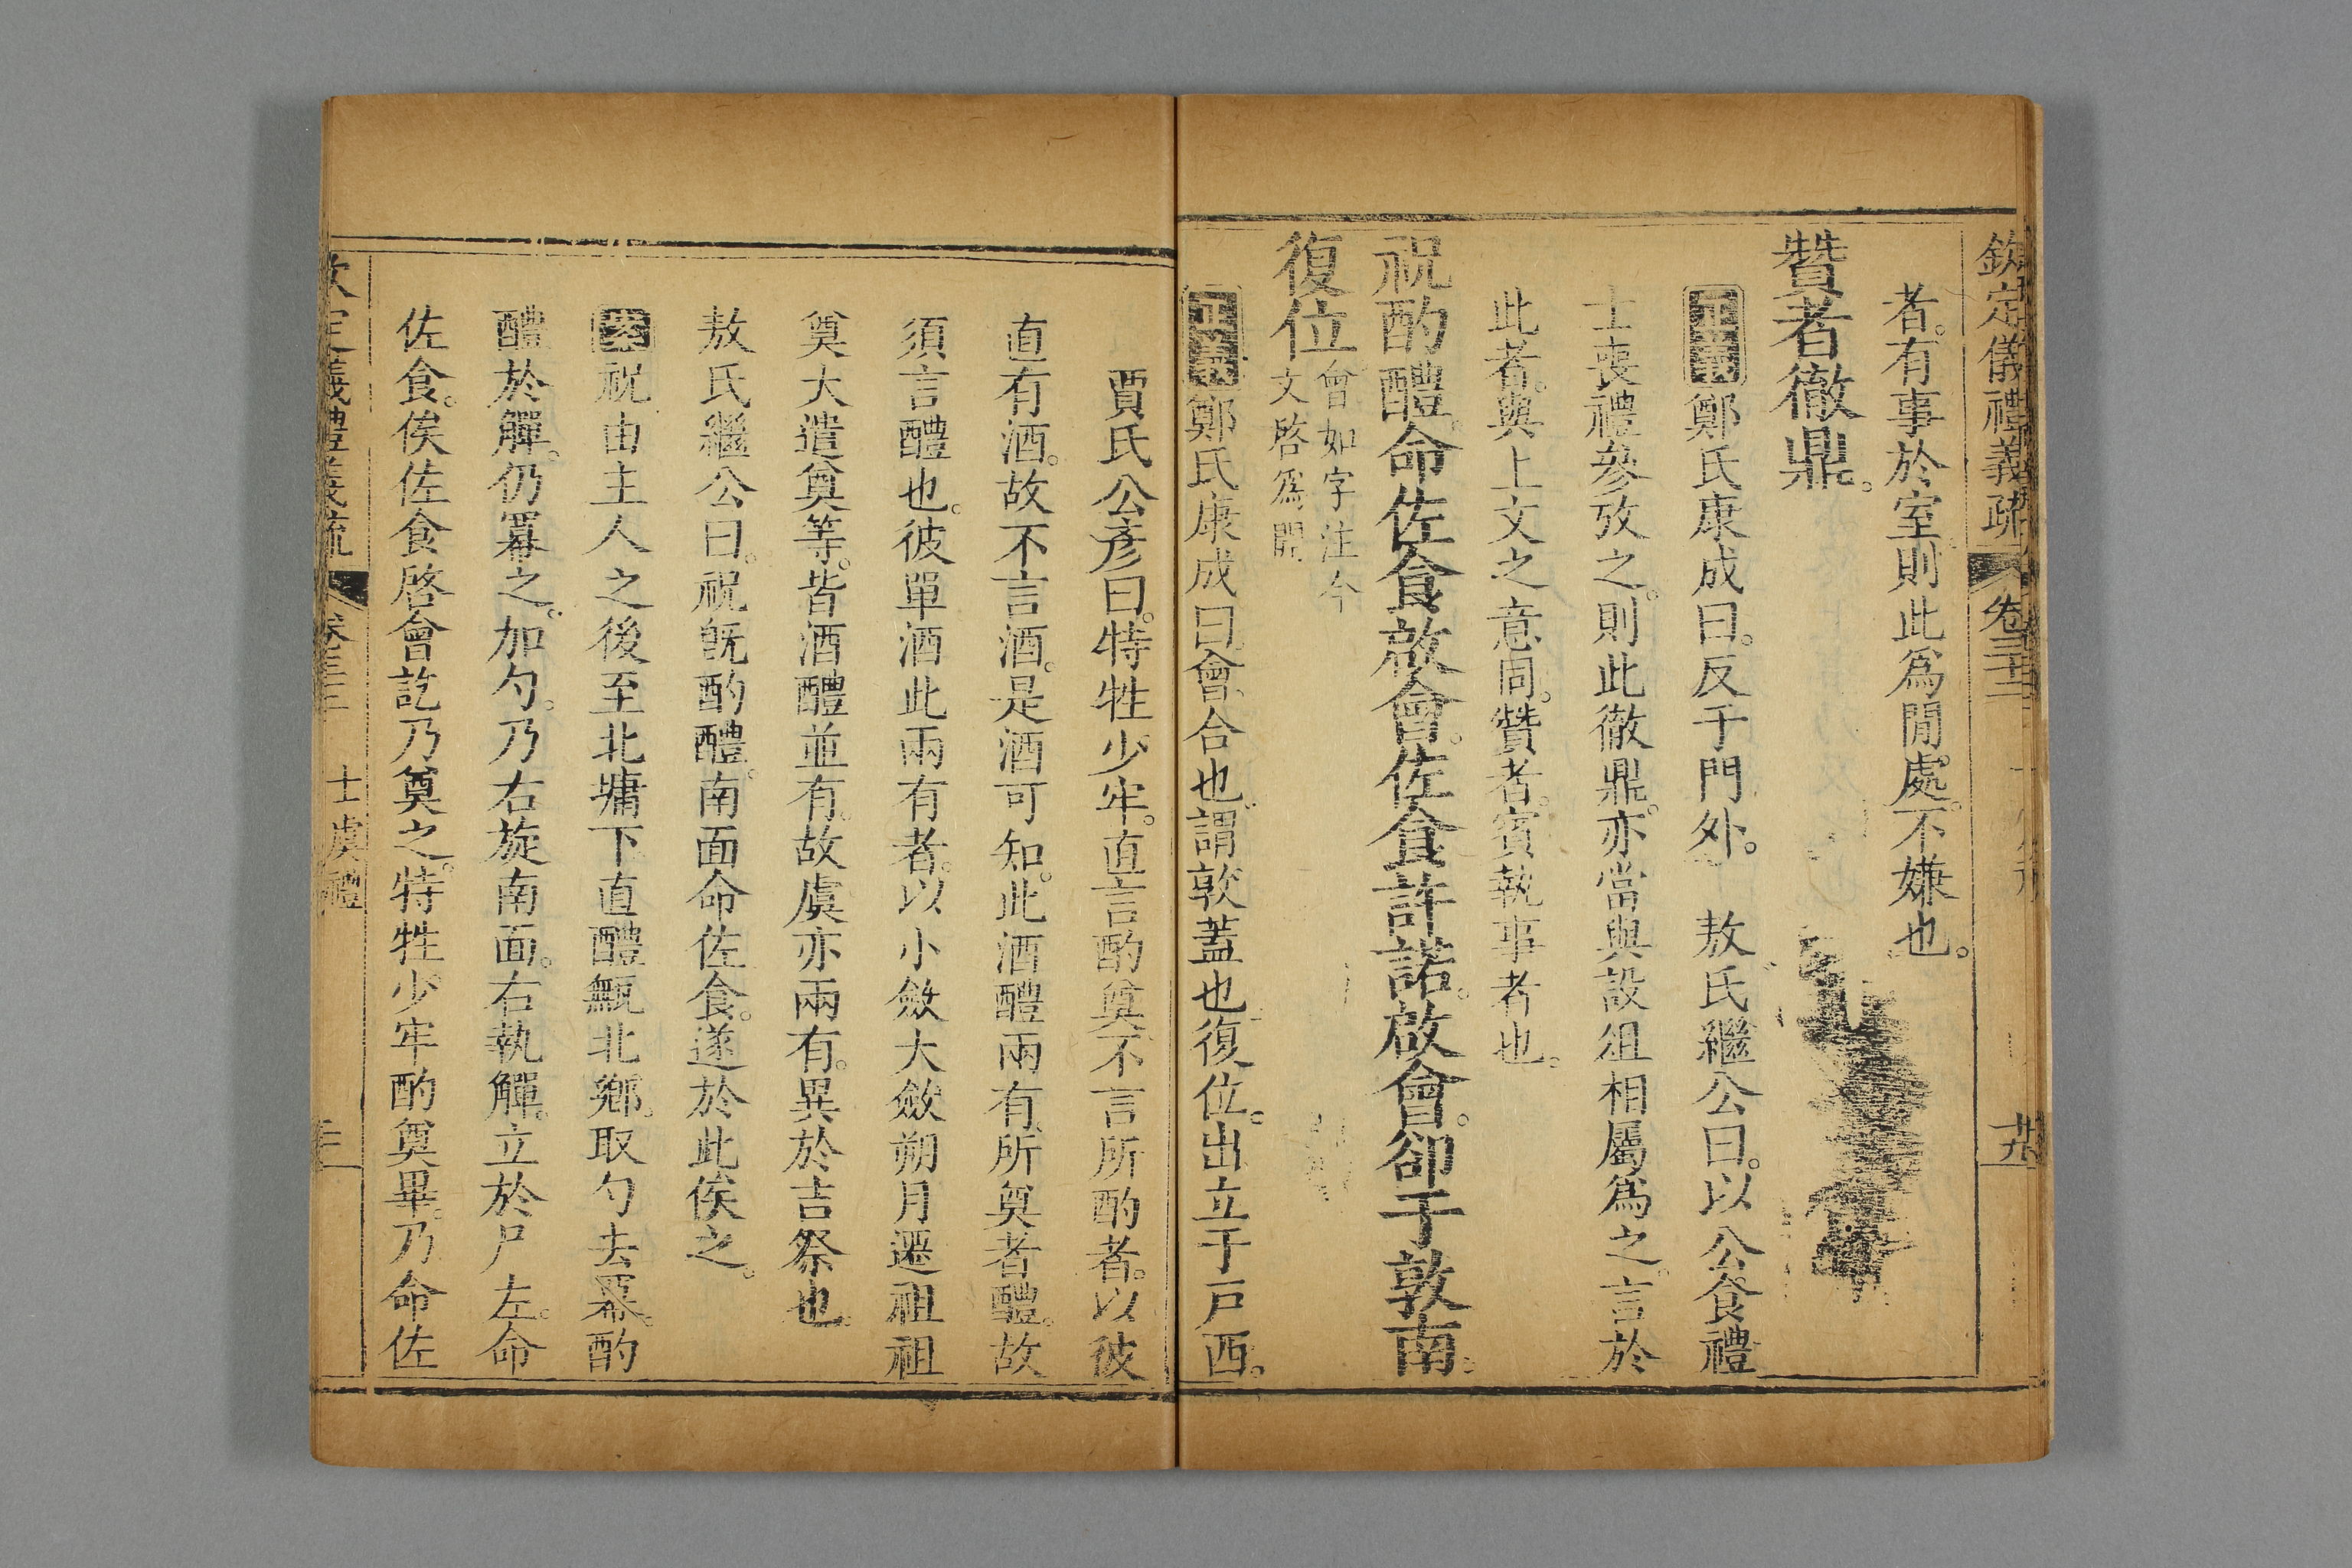 欽定儀禮義疏 卷三十三 廿九
者。有事於室。則此爲閒處。不嫌也。
贊者徹鼎。
正義 鄭氏康成曰。反于門外。 敖氏繼公曰。以公食禮
士喪禮參攷之。則此徹鼎。亦當與設俎相屬爲之。言於
此者。與上文之意同。贊者。賓執事者也。
祝酌醴。命佐食啟會。佐食許諾。啟會。卻于敦南。
復位 會如字注今
文啓爲開
正義 鄭氏康成曰。會。合也。謂敦蓋也。復位。出立于戶西。
賈氏公彥曰。特牲少牢。直言酌奠。不言所酌者。以彼
直有酒。故不言酒。是酒可知。此酒醴兩有。所奠者醴。故
須言醴也。彼單酒此兩有者。以小斂大斂朔月遷祖祖
奠大遣奠等。皆酒醴並有。故虞亦兩有。異於吉祭也。
敖氏繼公曰。祝既酌醴。南面命佐食。遂於此俟之。
案 祝由主人之後至北墉下。直醴甒北鄉。取勺去冪。酌
醴於觶。仍冪之。加勺。乃右旋南面。右執觶。立於尸左。命
佐食。俟佐食啓會訖乃奠之。特牲少牢酌奠畢。乃命佐
欽定儀禮義疏 卷三十三 士虞禮 三十